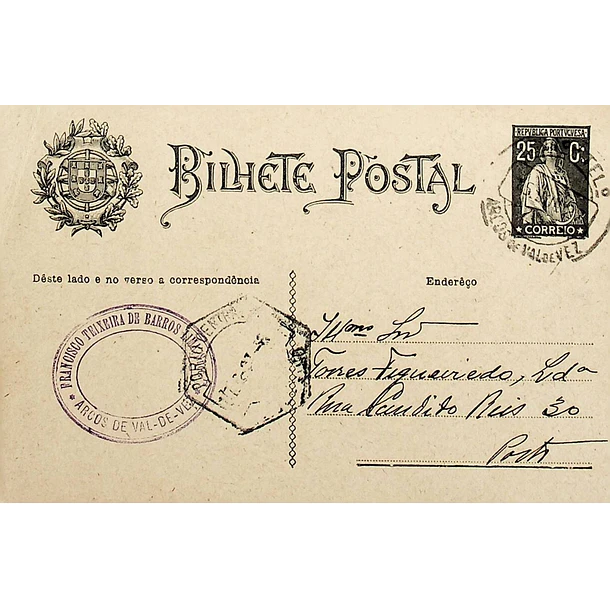 REPUBLICA PORTUGUESA
25 C.
CORREIO
BILHETE POSTAL
ARCOS DE VAL DE VEZ
Dêste lado e no verso a correspondência
Endereço
FRANCISCO TEIXEIRA DE BARROS
ARCOS DE VAL-DE-VEZ
Illmos Snr
Torres Figueiredo, Lda
Rua Candido Reis 30
Porto